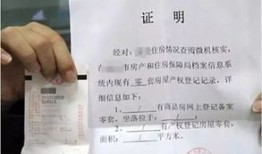 证明
经对: 住房情况查阅微机核实,
在 市房产和住房保障局档案信息系
统内现有 零 套房屋产权登记记录。详
细信息如下:
1、 / 有商品房网上登记备案
零套。坐落位于: /
2、 / 有产权登记房屋零套。
面积: / 平方米。